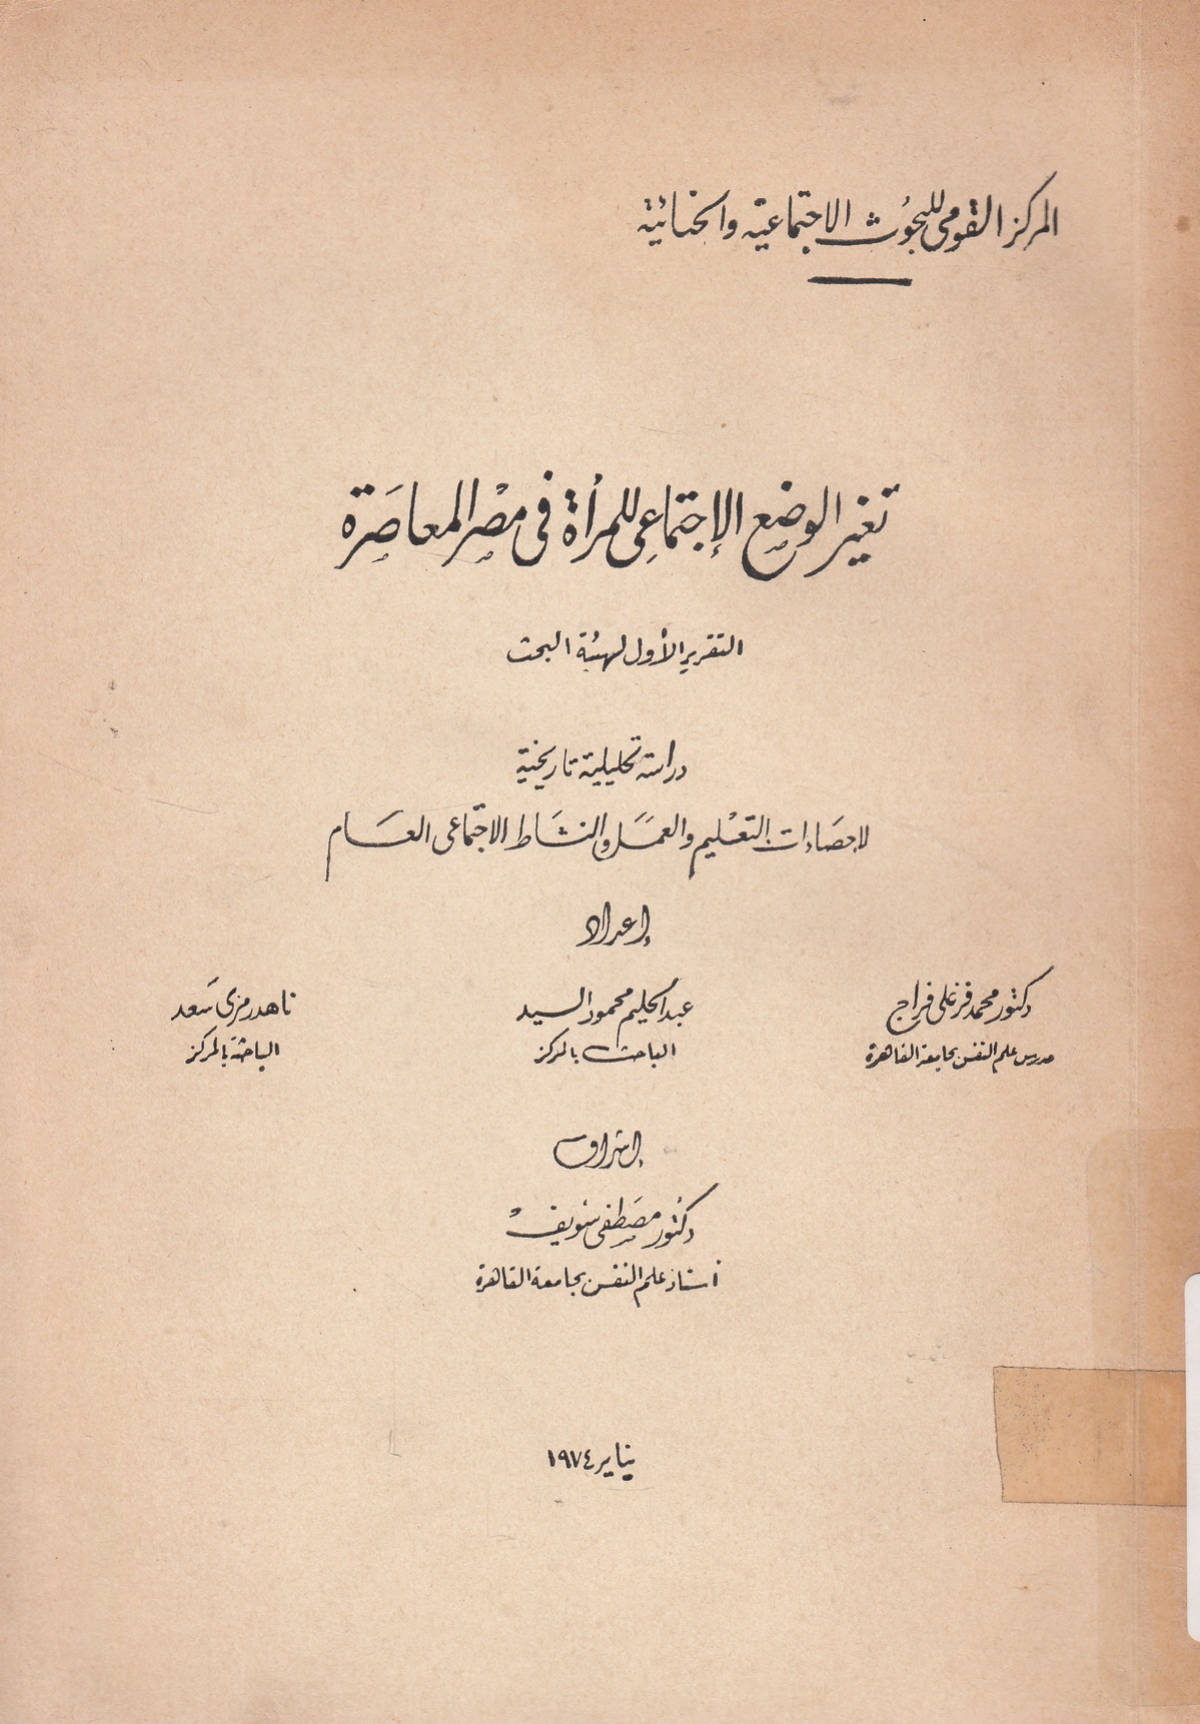 المركز القومى للبحوث الاجتماعية والجنائية
تغير الوضع الإجتماعى للمرأة فى مصر المعاصرة
التقرير الأول لهيئة البحث
دراسة تحليلية تاريخية
لإحصاءات التعليم والعمل والنشاط الاجتماعى العام
إعداد
دكتور محمد فرغلى فراج
مدرس علم النفس بجامعة القاهرة
عبد الحليم محمود السيد
الباحث بالمركز
ناهد رمزى سعد
الباحثة بالمركز
إشراف
دكتور مصطفى سويف
أستاذ علم النفس بجامعة القاهرة
يناير ١٩٧٤